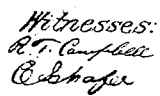 Witnesses:
R. T. Campbell
C Shafer